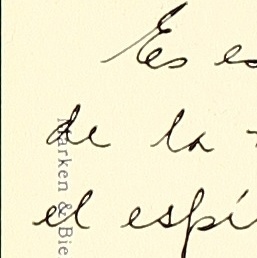 Es es
de la
el espí
Marken & Bie